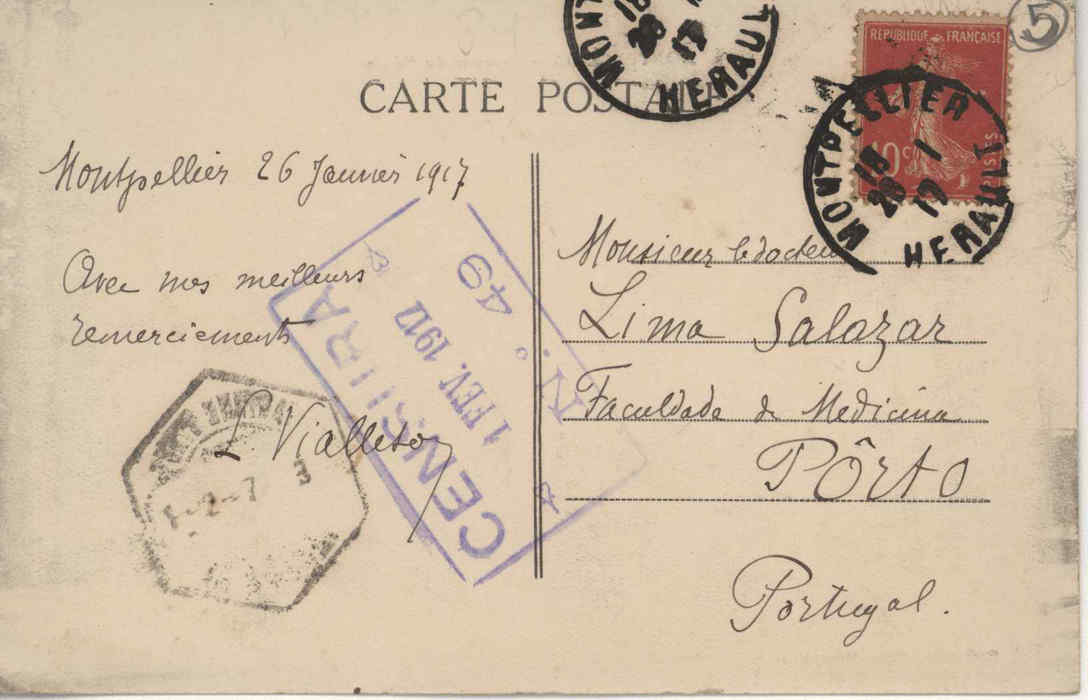 CARTE POSTALE
Montpellier 26 Janvier 1917
Avec mes meilleurs
remerciements
L. Vialleton
Monsieur le docteur
Lima Salazar
Faculdade de Medicina
Pôrto
Portugal.
RÉPUBLIQUE FRANÇAISE
10c
MONTPELLIER
18
28 1
17
HERAULT
MONT
18
28
17
HERAUL
5
CENSURA
1 FEV. 1917
N.º 49